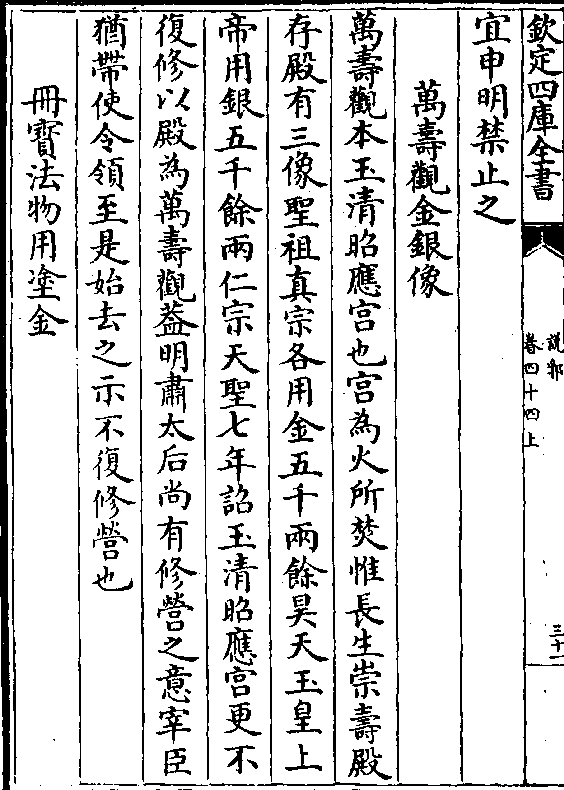 欽定四庫全書
說郛
卷四十四上
三十一
宜申明禁止之
萬壽觀金銀像
萬壽觀本玉清昭應宫也宫為火所焚惟長生崇壽殿
存殿有三像聖祖真宗各用金五千兩餘昊天玉皇上
帝用銀五千餘兩仁宗天聖七年詔玉清昭應宫更不
復修以殿為萬壽觀葢明肅太后尚有修營之意宰臣
猶帶使令領至是始去之示不復修營也
冊寳法物用塗金